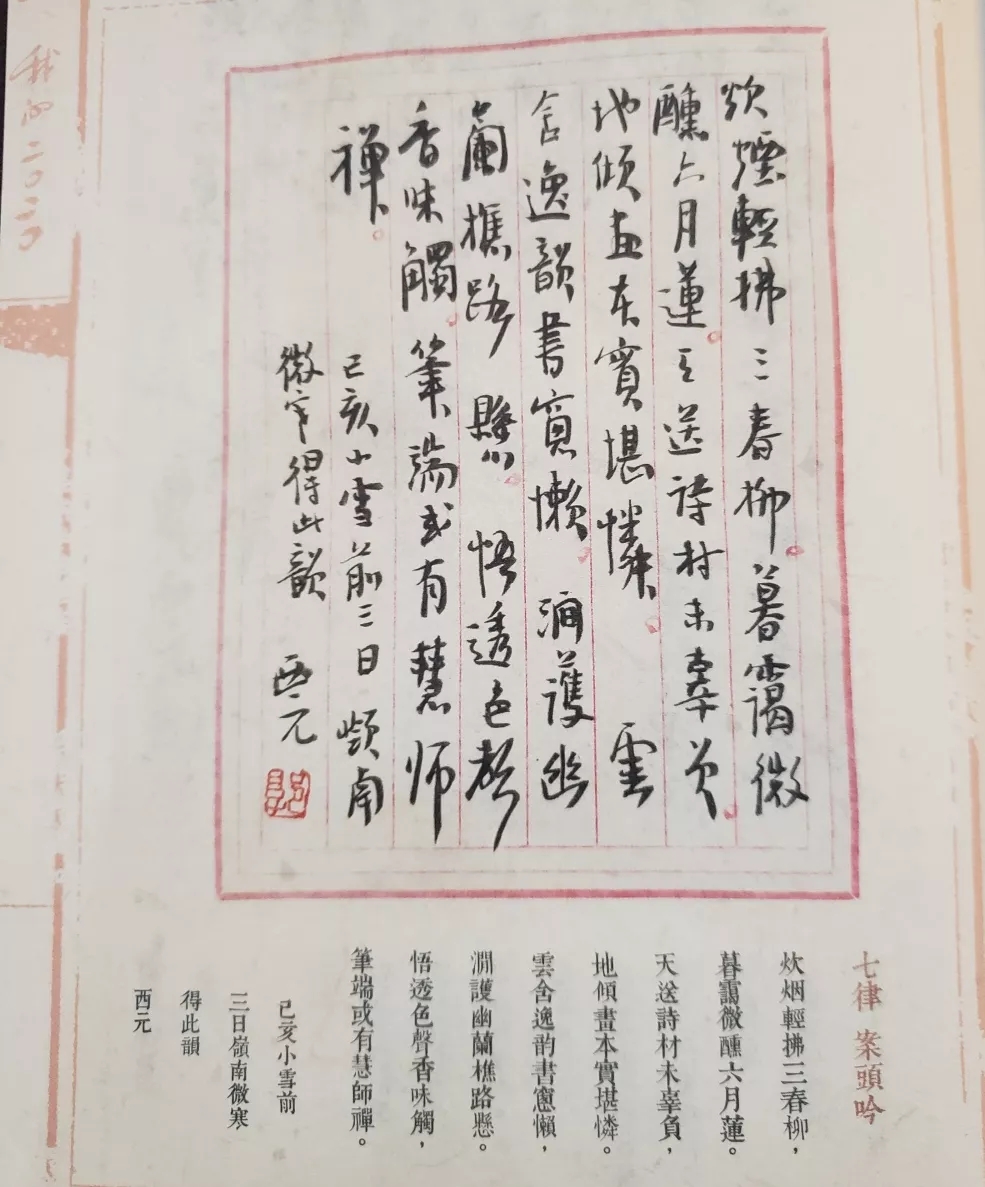 我的二〇二〇
炊煙輕拂三春柳暮靄微
醺六月蓮天送詩材未辜負
地傾畫本實堪憐雲
舍逸韻書窻懶淵護幽
蘭樵路懸悟透色聲
香味觸筆端或有慧师
禅
己亥小雪前三日嶺南
微寒得此韻 西元
七律 案頭吟
炊烟輕拂三春柳，
暮靄微醺六月蓮。
天送詩材未辜負，
地傾畫本實堪憐。
雲舍逸韵書窻懶，
淵護幽蘭樵路懸。
悟透色聲香味觸，
筆端或有慧師禪。
己亥小雪前
三日嶺南微寒
得此韻
西元